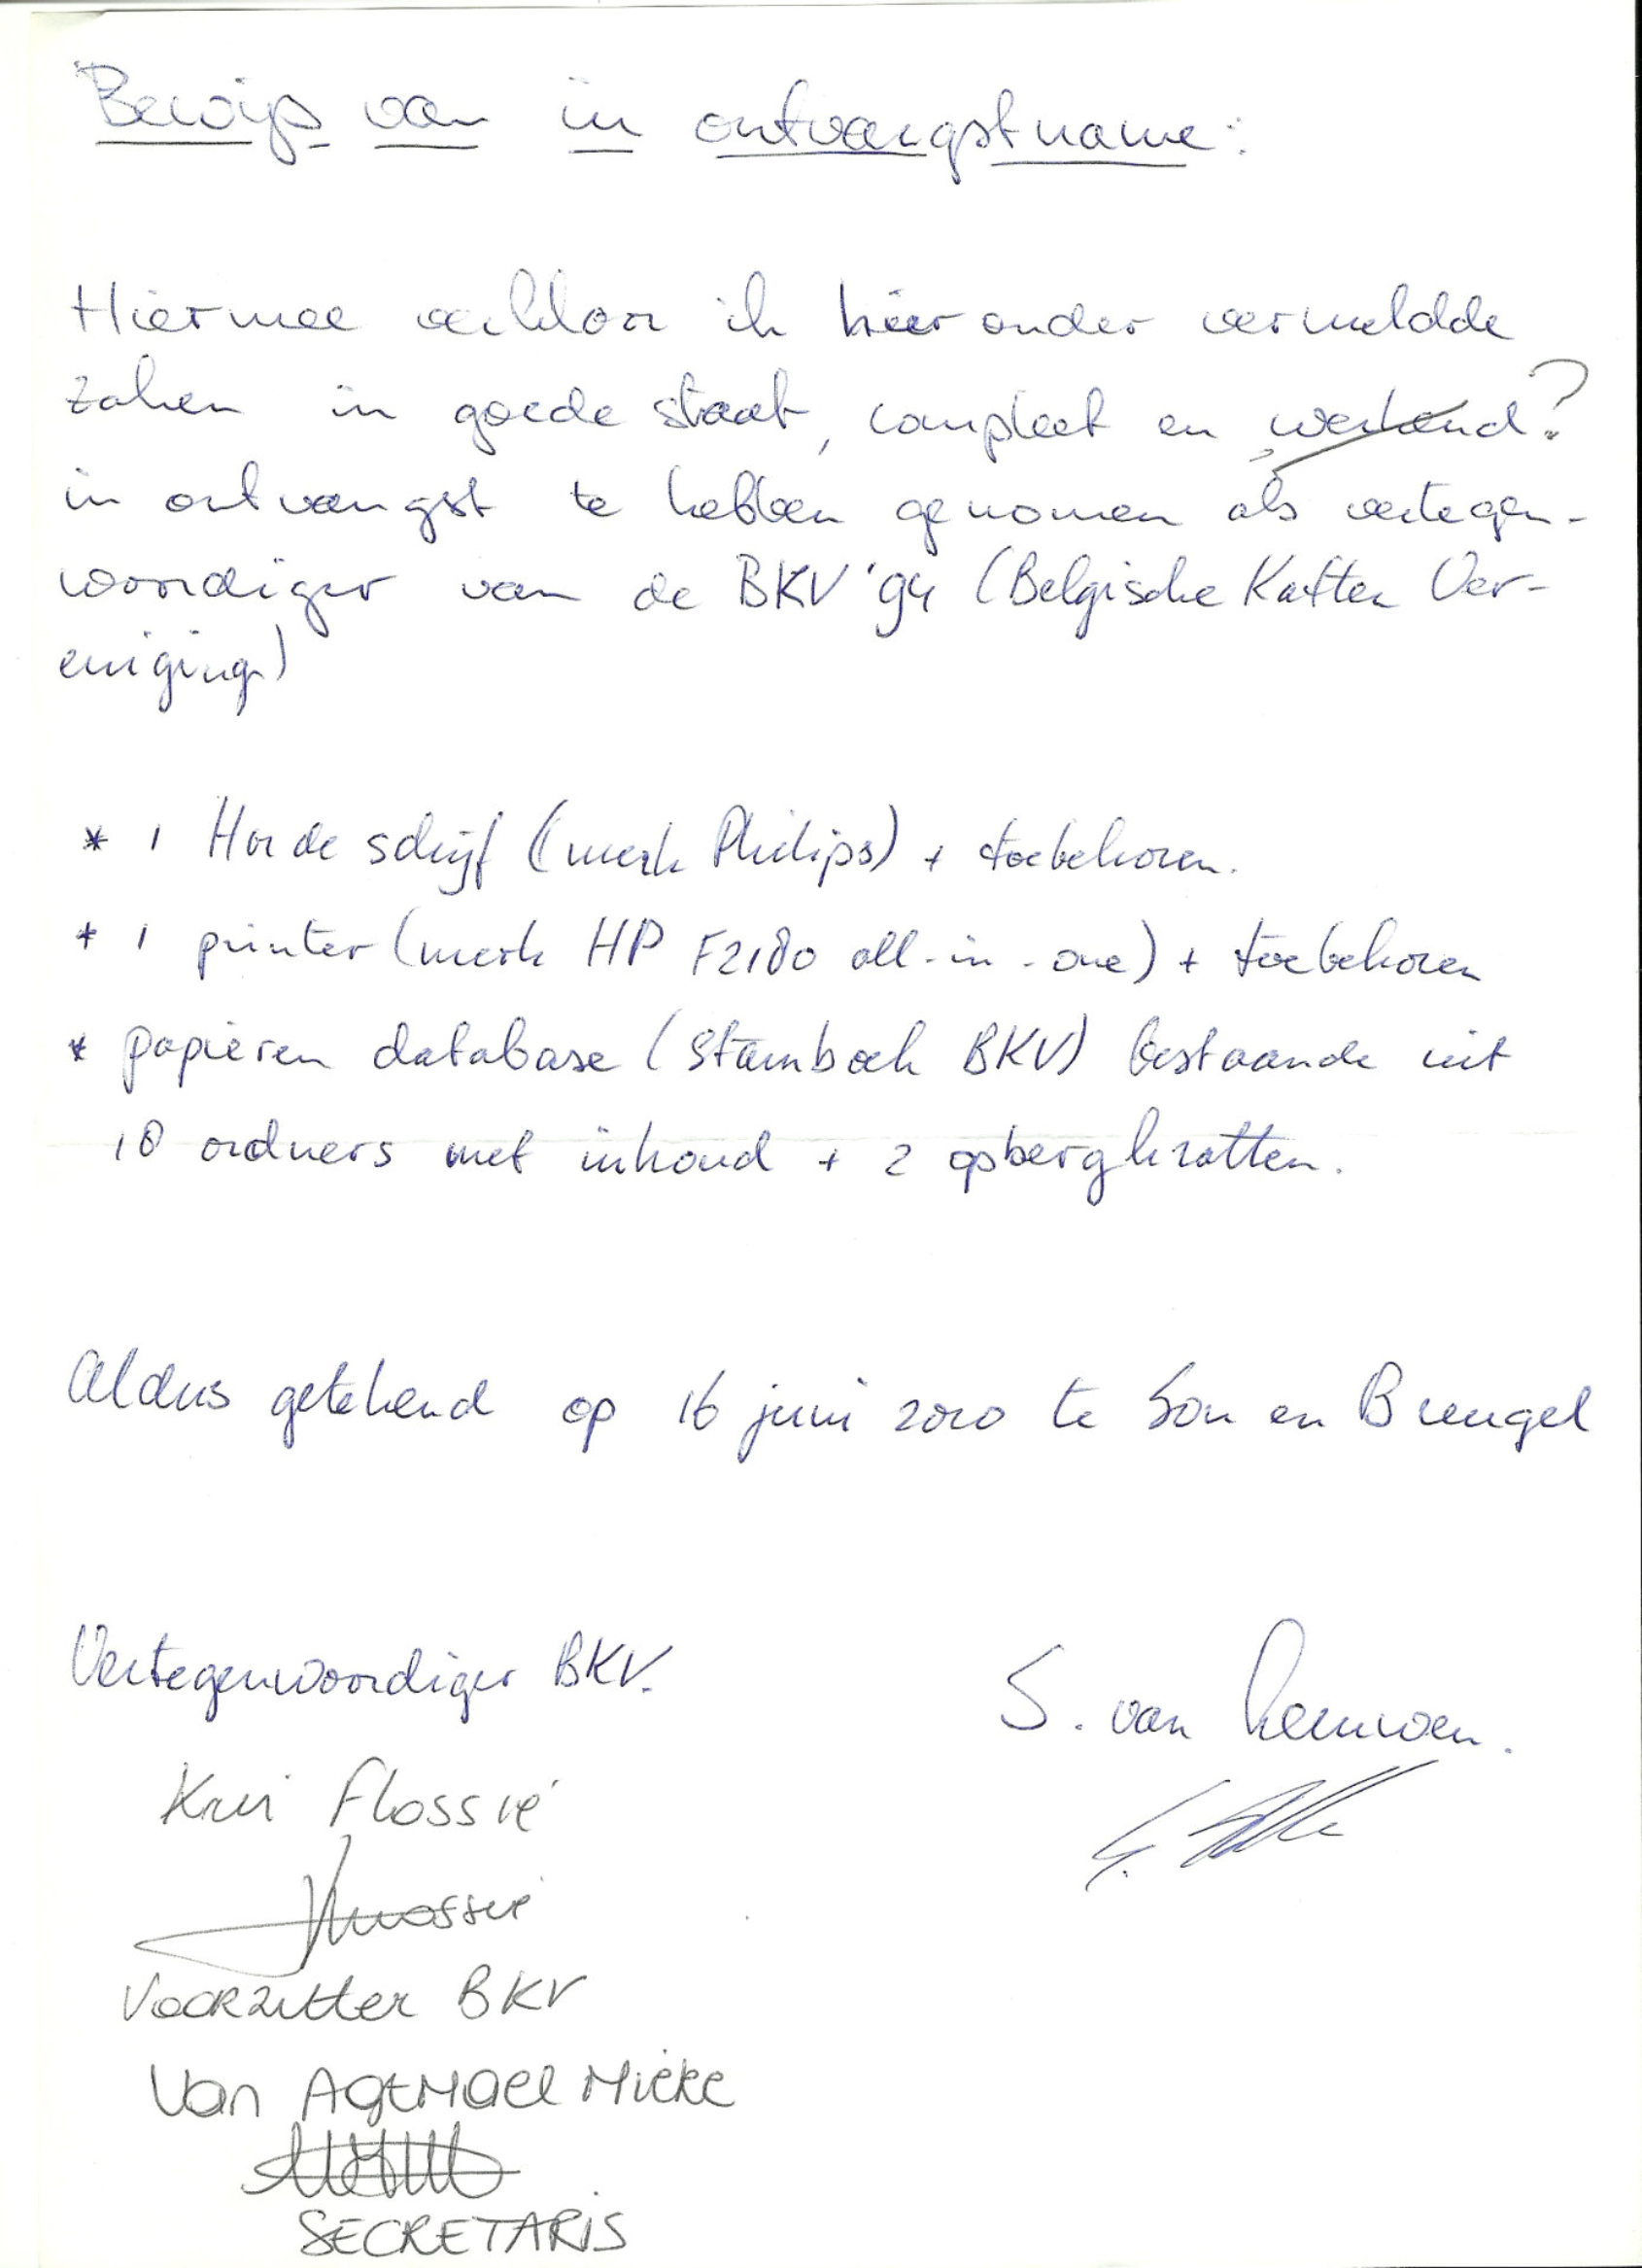 Bewijs van in ontvangstname:
Hiermee verklaar ik hieronder vermeldde
zaken in goede staat, compleet en werkend?
in ontvangst te hebben genomen als vertegen-
woordiger van de BKV '94 (Belgische Katten Ver-
eniging)
* 1 Harde schijf (merk Philips) + toebehoren.
* 1 printer (merk HP F2180 all-in-one) + toebehoren
* papieren database (Stamboek BKV) bestaande uit
18 ordners met inhoud + 2 opbergkratten.
Aldus getekend op 16 juni 2010 te Son en Breugel
Vertegenwoordiger BKV.
S. van Leeuwen.
Flossie
Voorzitter BKV
Van Agtmael Mieke
SECRETARIS